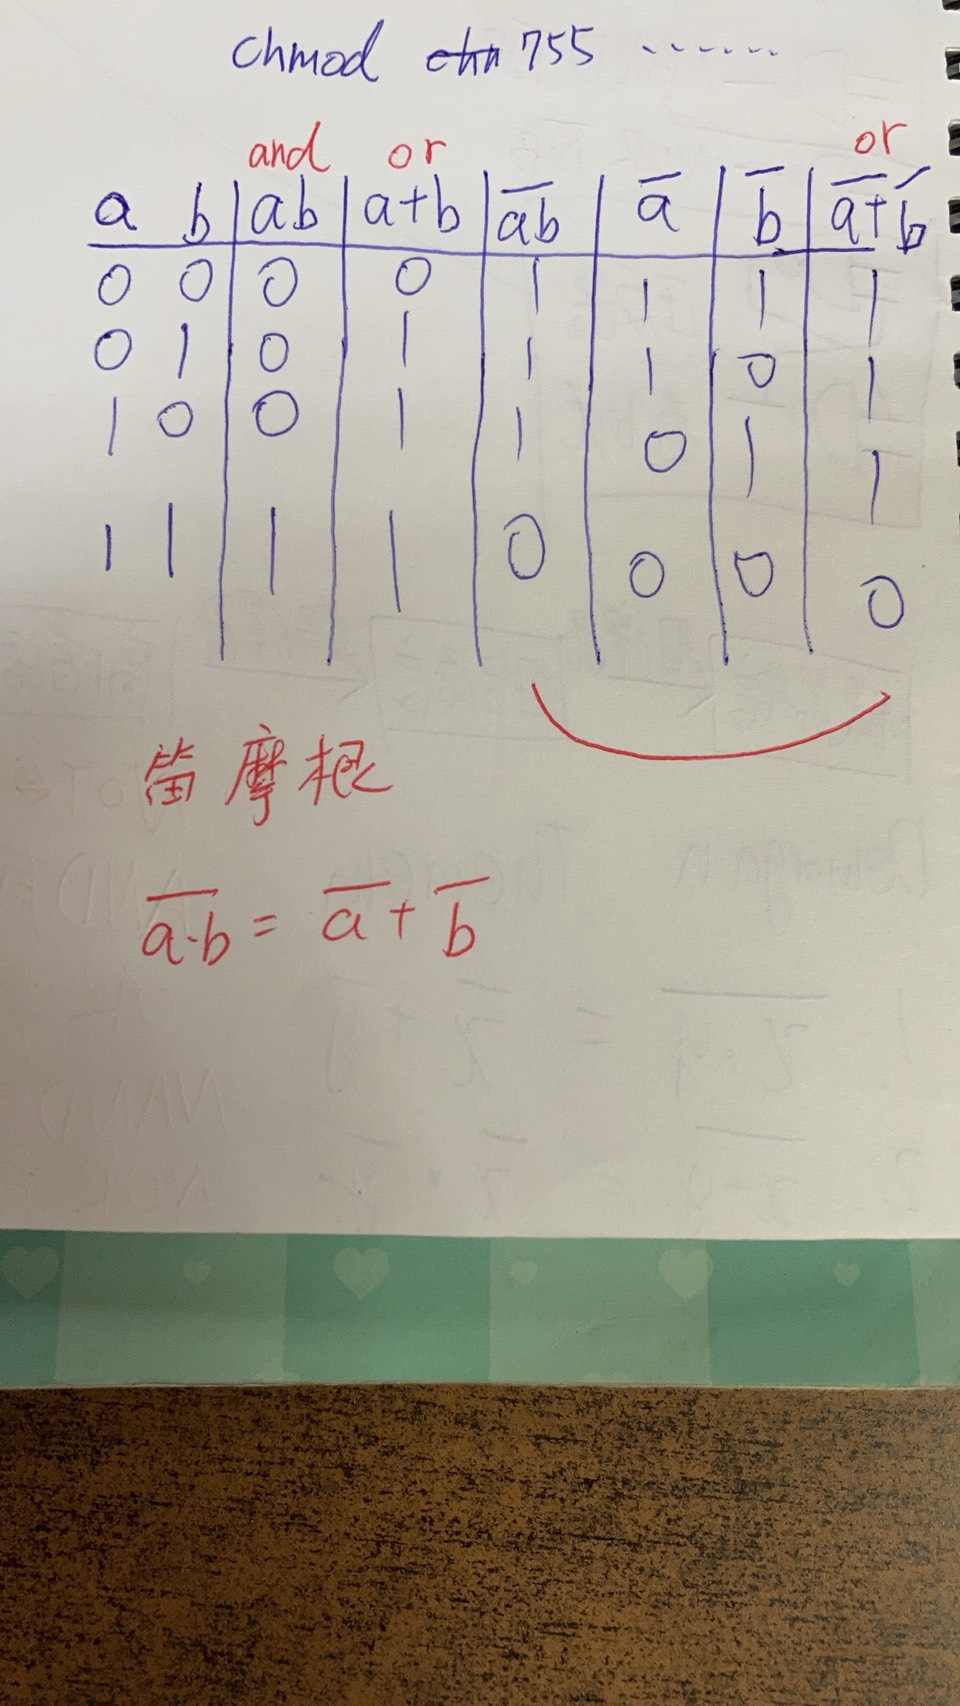 chmod chn 755 .......
and or or
a b ab a+b a̅b̅ a̅ b̅ a̅+b̅
0 0 0 0 1 1 1 1
0 1 0 1 1 1 0 1
1 0 0 1 1 0 1 1
1 1 1 1 0 0 0 0
笛摩根
a̅·̅b̅ = a̅ + b̅